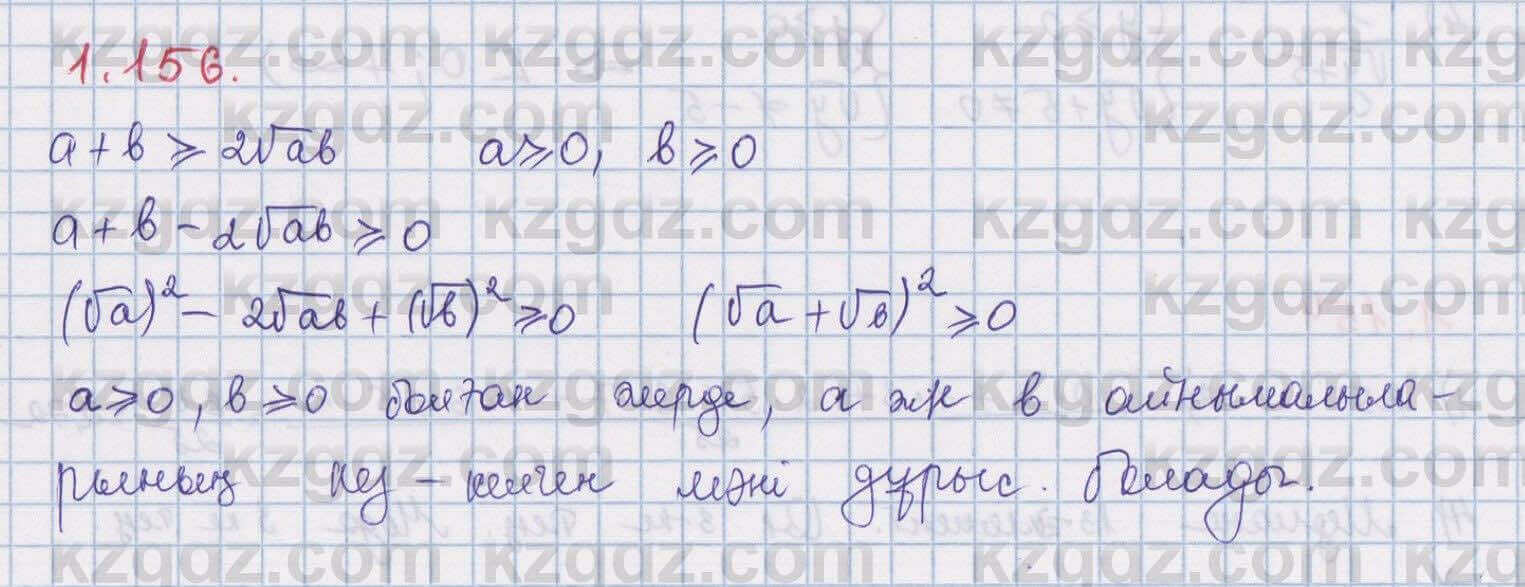 1.156.
a+b ≥ 2√ab a≥0, b≥0
a+b-2√ab ≥ 0
(√a)² - 2√ab + (√b)² ≥ 0 (√a + √b)² ≥ 0
a≥0, b≥0 болған жерде, a жә b айнымалыла-
рының кез-келген мәні дұрыс. болады.